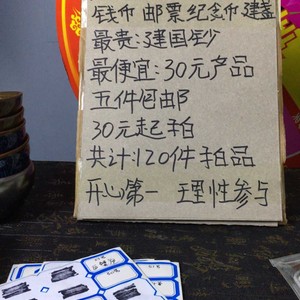 钱币 邮票 纪念币 建盏
最贵:建国钞
最便宜:30元产品
五件包邮
30元起拍
共计:120件拍品
开心第一 理性参与